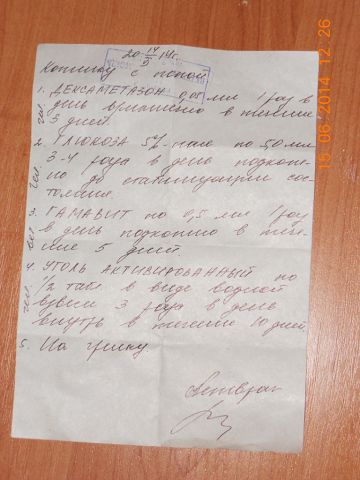 20 14/3 14г.
Котику с
1. ДЕКСАМЕТАЗОН 0,05 мл 1 раз в
день в течение
5 дней.
2. ГЛЮКОЗА 5%-ная по 50 мл
3-4 раза в день подкож-
но до стабилизации сос-
тояния.
3. ГАМАВИТ по 0,5 мл 1 раз
в день подкожно в тече-
ние 5 дней.
4. УГОЛЬ АКТИВИРОВАННЫЙ по
1/2 таб. в виде водной
взвеси 3 раза в день
внутрь в течении 10 дней.
5. На грелку
Ветврач
15.06.2014 12:26